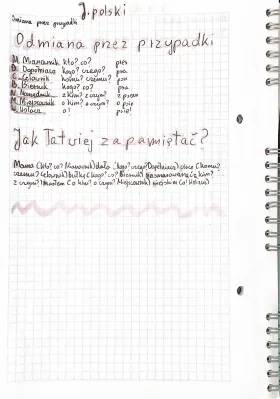 J. polski
Zmiana przez przypadki
Odmiana przez przypadki
M. Mianownik kto? co? pies
D. Dopełniacz kogo? czego? psa
C. Celownik komu? czemu? psu
B. Biernik kogo? co? psa
N. Narzędnik z kim? z czym? z psem
M. Miejscownik o kim? o czym? o psie
W. Wołacz o! psie!
Jak łatwiej zapamiętać?
Mama (kto? co? Mianownik) dała (kogo? czego? Dopełniacz) (komu?
czemu? Celownik) bułkę (kogo? co? Biernik) posmarowaną (z kim?
z czym? (o kim? o czym? Miejscownik) (o! Wołacz)